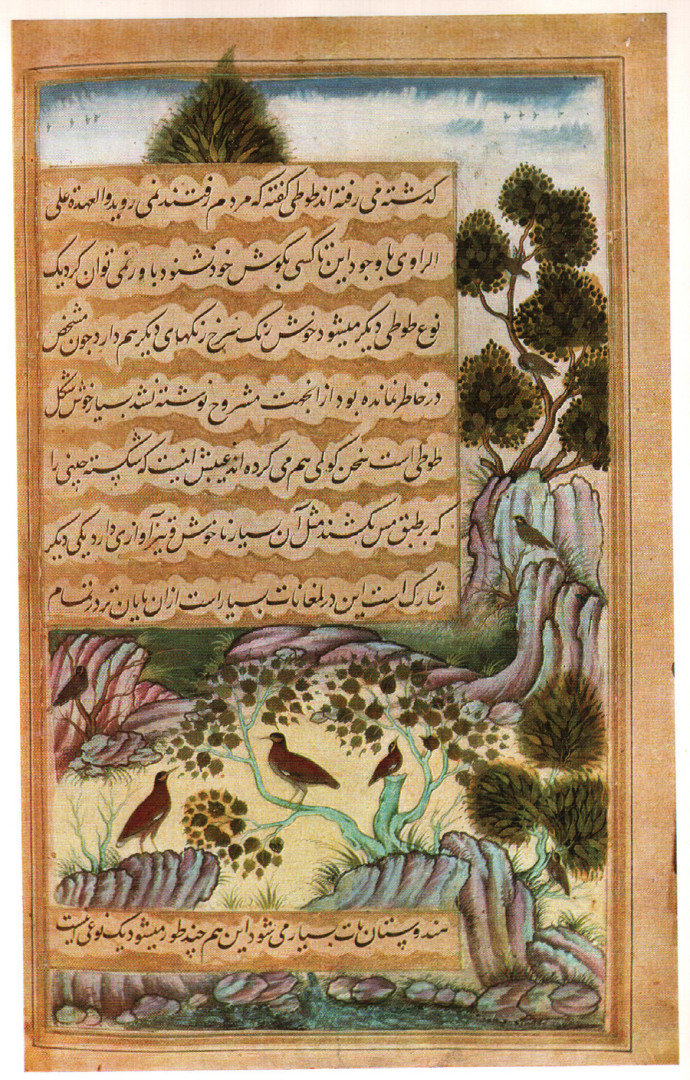 کذشته می رفته اند طوطی کفته که مردم رفتند نمی روید و العهدة علی
الراوی با وجود این تا کسی بکوش خود نشنود باور نمی توان کرد یک
نوع طوطی دیکر میشود خوش رنک سرخ رنکهای دیکر هم دارد جون مشخص
در خاطر نمانده بود از انجهت مشروح نوشته نشد بسیار خوش شکل
طوطی است سخن کوئی هم می کرده اند عیبش اینست که شکسته چینی را
که بر طبق مس بکشند مثل آن بسیار ناخوش و تیز آوازی دارد یکی دیکر
شارک است این در لمغانات بسیار است از ان پایان تر در تمام
هندوستان هات بسیار می شود این هم چند طور میشود یک نوعی هست